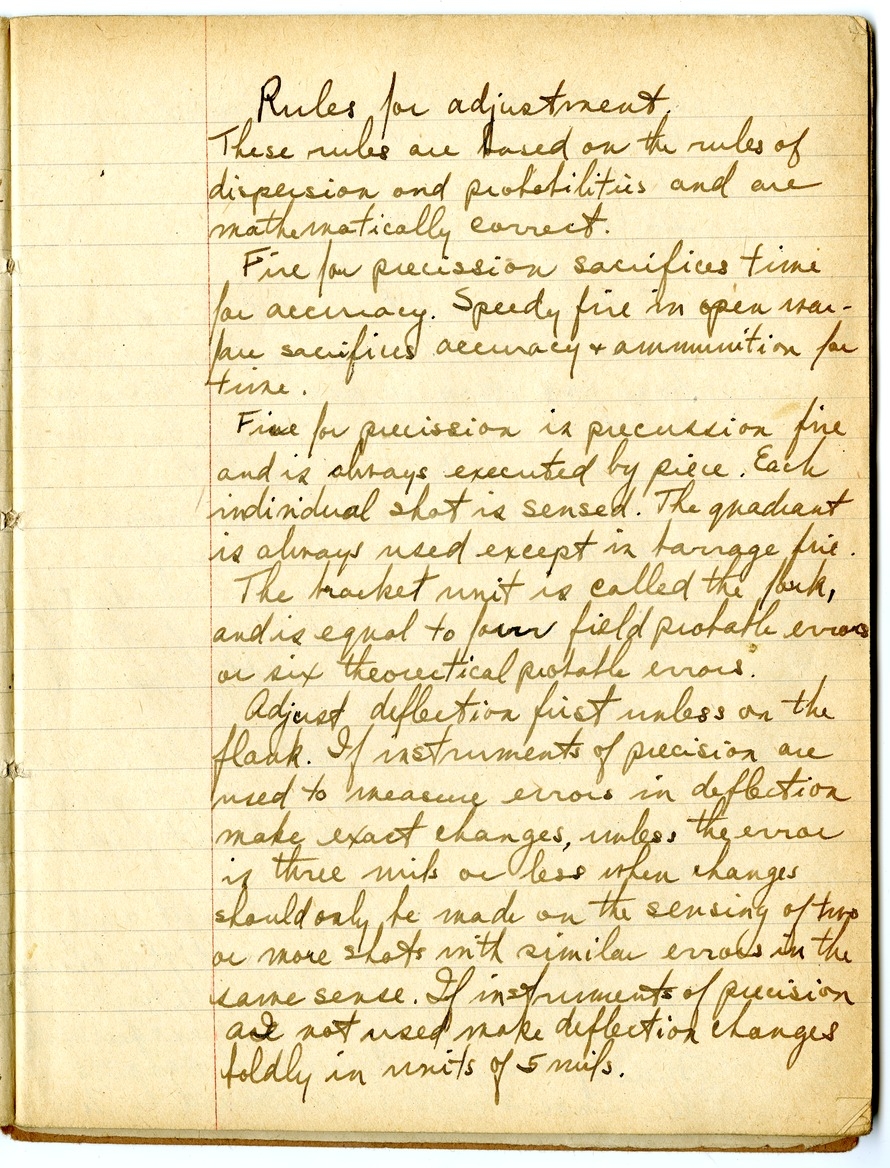 Rules for adjustment.
These rules are based on the rules of
dispersion and probabilities and are
mathematically correct.
Fire for precission sacrifices time
for accuracy. Speedy fire in open war-
fare sacrifices accuracy + ammunition for
time.
Fire for precission is precussion fire
and is always executed by piece. Each
individual shot is sensed. The quadrant
is always used except in barrage fire.
The bracket unit is called the fork,
and is equal to four field probable errors
or six theorectical probable errors.
Adjust deflection first unless on the
flank. If instruments of precision are
used to measure errors in deflection
make exact changes, unless the error
is three mils or less when changes
should only be made on the sensing of two
or more shots with similar errors in the
same sense. If instruments of precision
are not used make deflection changes
boldly in units of 5 mils.